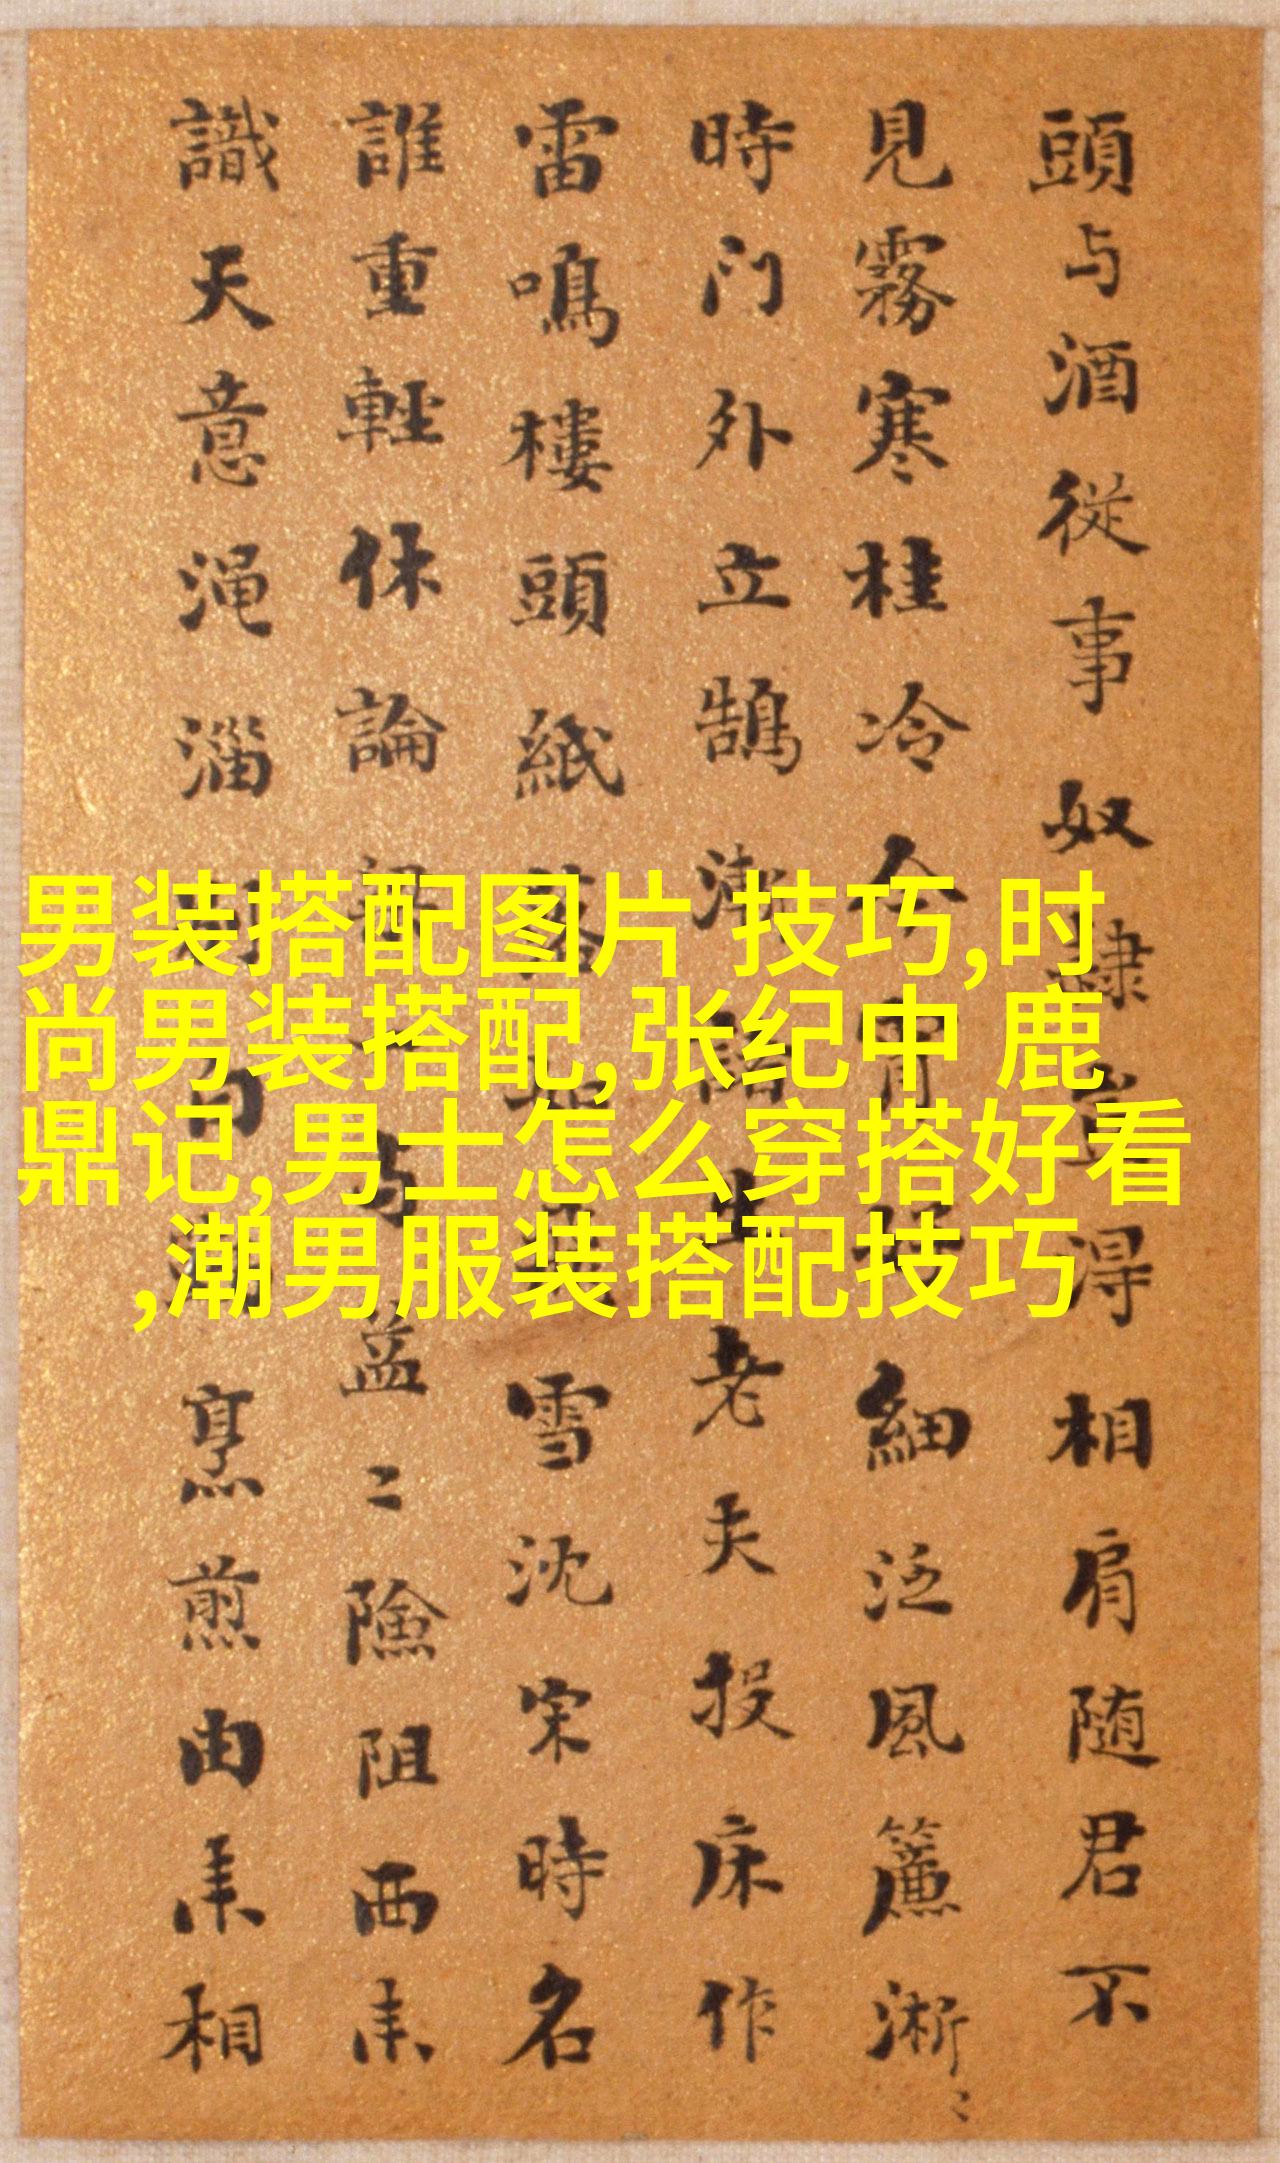 頭与酒從事奴隷得相肩随君不
見霧寒桂冷今細泛風簾淅〻
時门外立鵠老夫投床作
雷鳴樓頭紙雪沈宋時名
誰重輕休論益〻險阻西来
識天意渑淄烹煎由来相
男装搭配图片 技巧,时
尚男装搭配,张纪中 鹿
鼎记,男士怎么穿搭好看
,潮男服装搭配技巧